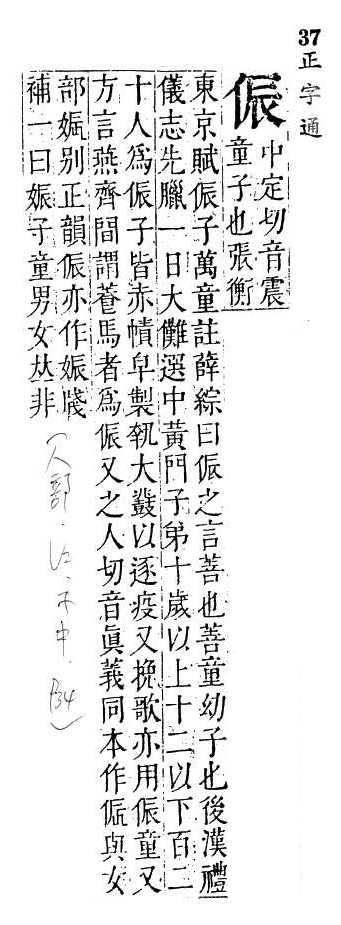 37正字通
侲
中定切音震
童子也張衡
東京賦侲子萬童註薛綜曰侲之言善也善童幼子也後漢禮
儀志先臘一日大儺選中黃門子弟十歲以上十二以下百二
十人爲侲子皆赤幘皁製執大鼗以逐疫又挽歌亦用侲童又
方言燕齊間謂養馬者爲侲又之人切音眞義同本作侲與女
部娠别正韻侲亦作娠牋
補一曰娠子童男女𠀤非